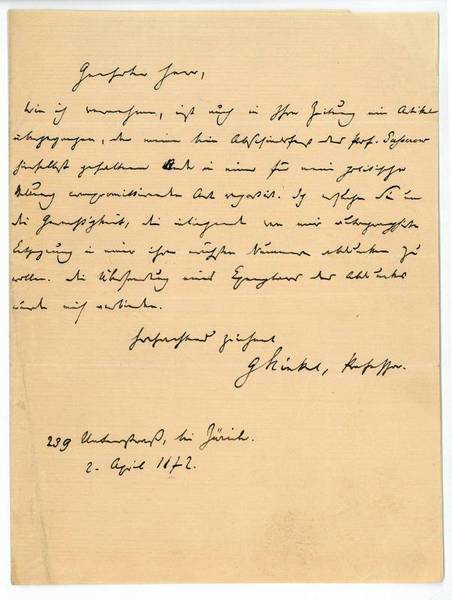 Geehrter Herr,
Wie ich vernehme, ist auch in Ihre Zeitung ein Artikel
übergegangen, der meine beim Abschiedsfest des Prof.
hierselbst gehaltene Rede in einer für meine politische
Stellung compromittirenden Art. Ich ersuche Sie um
die Gefälligkeit, die inliegend von mir
Entgegnung in einer Ihrer nächsten Nummern abdrucken zu
wollen. Die Übersendung eines Exemplares des Abdrucks
würde mich verbinden.
Hochachtend zeichnet
GKinkel, Professor.
239 Unterstraß, bei Zürich.
2. April 1872.